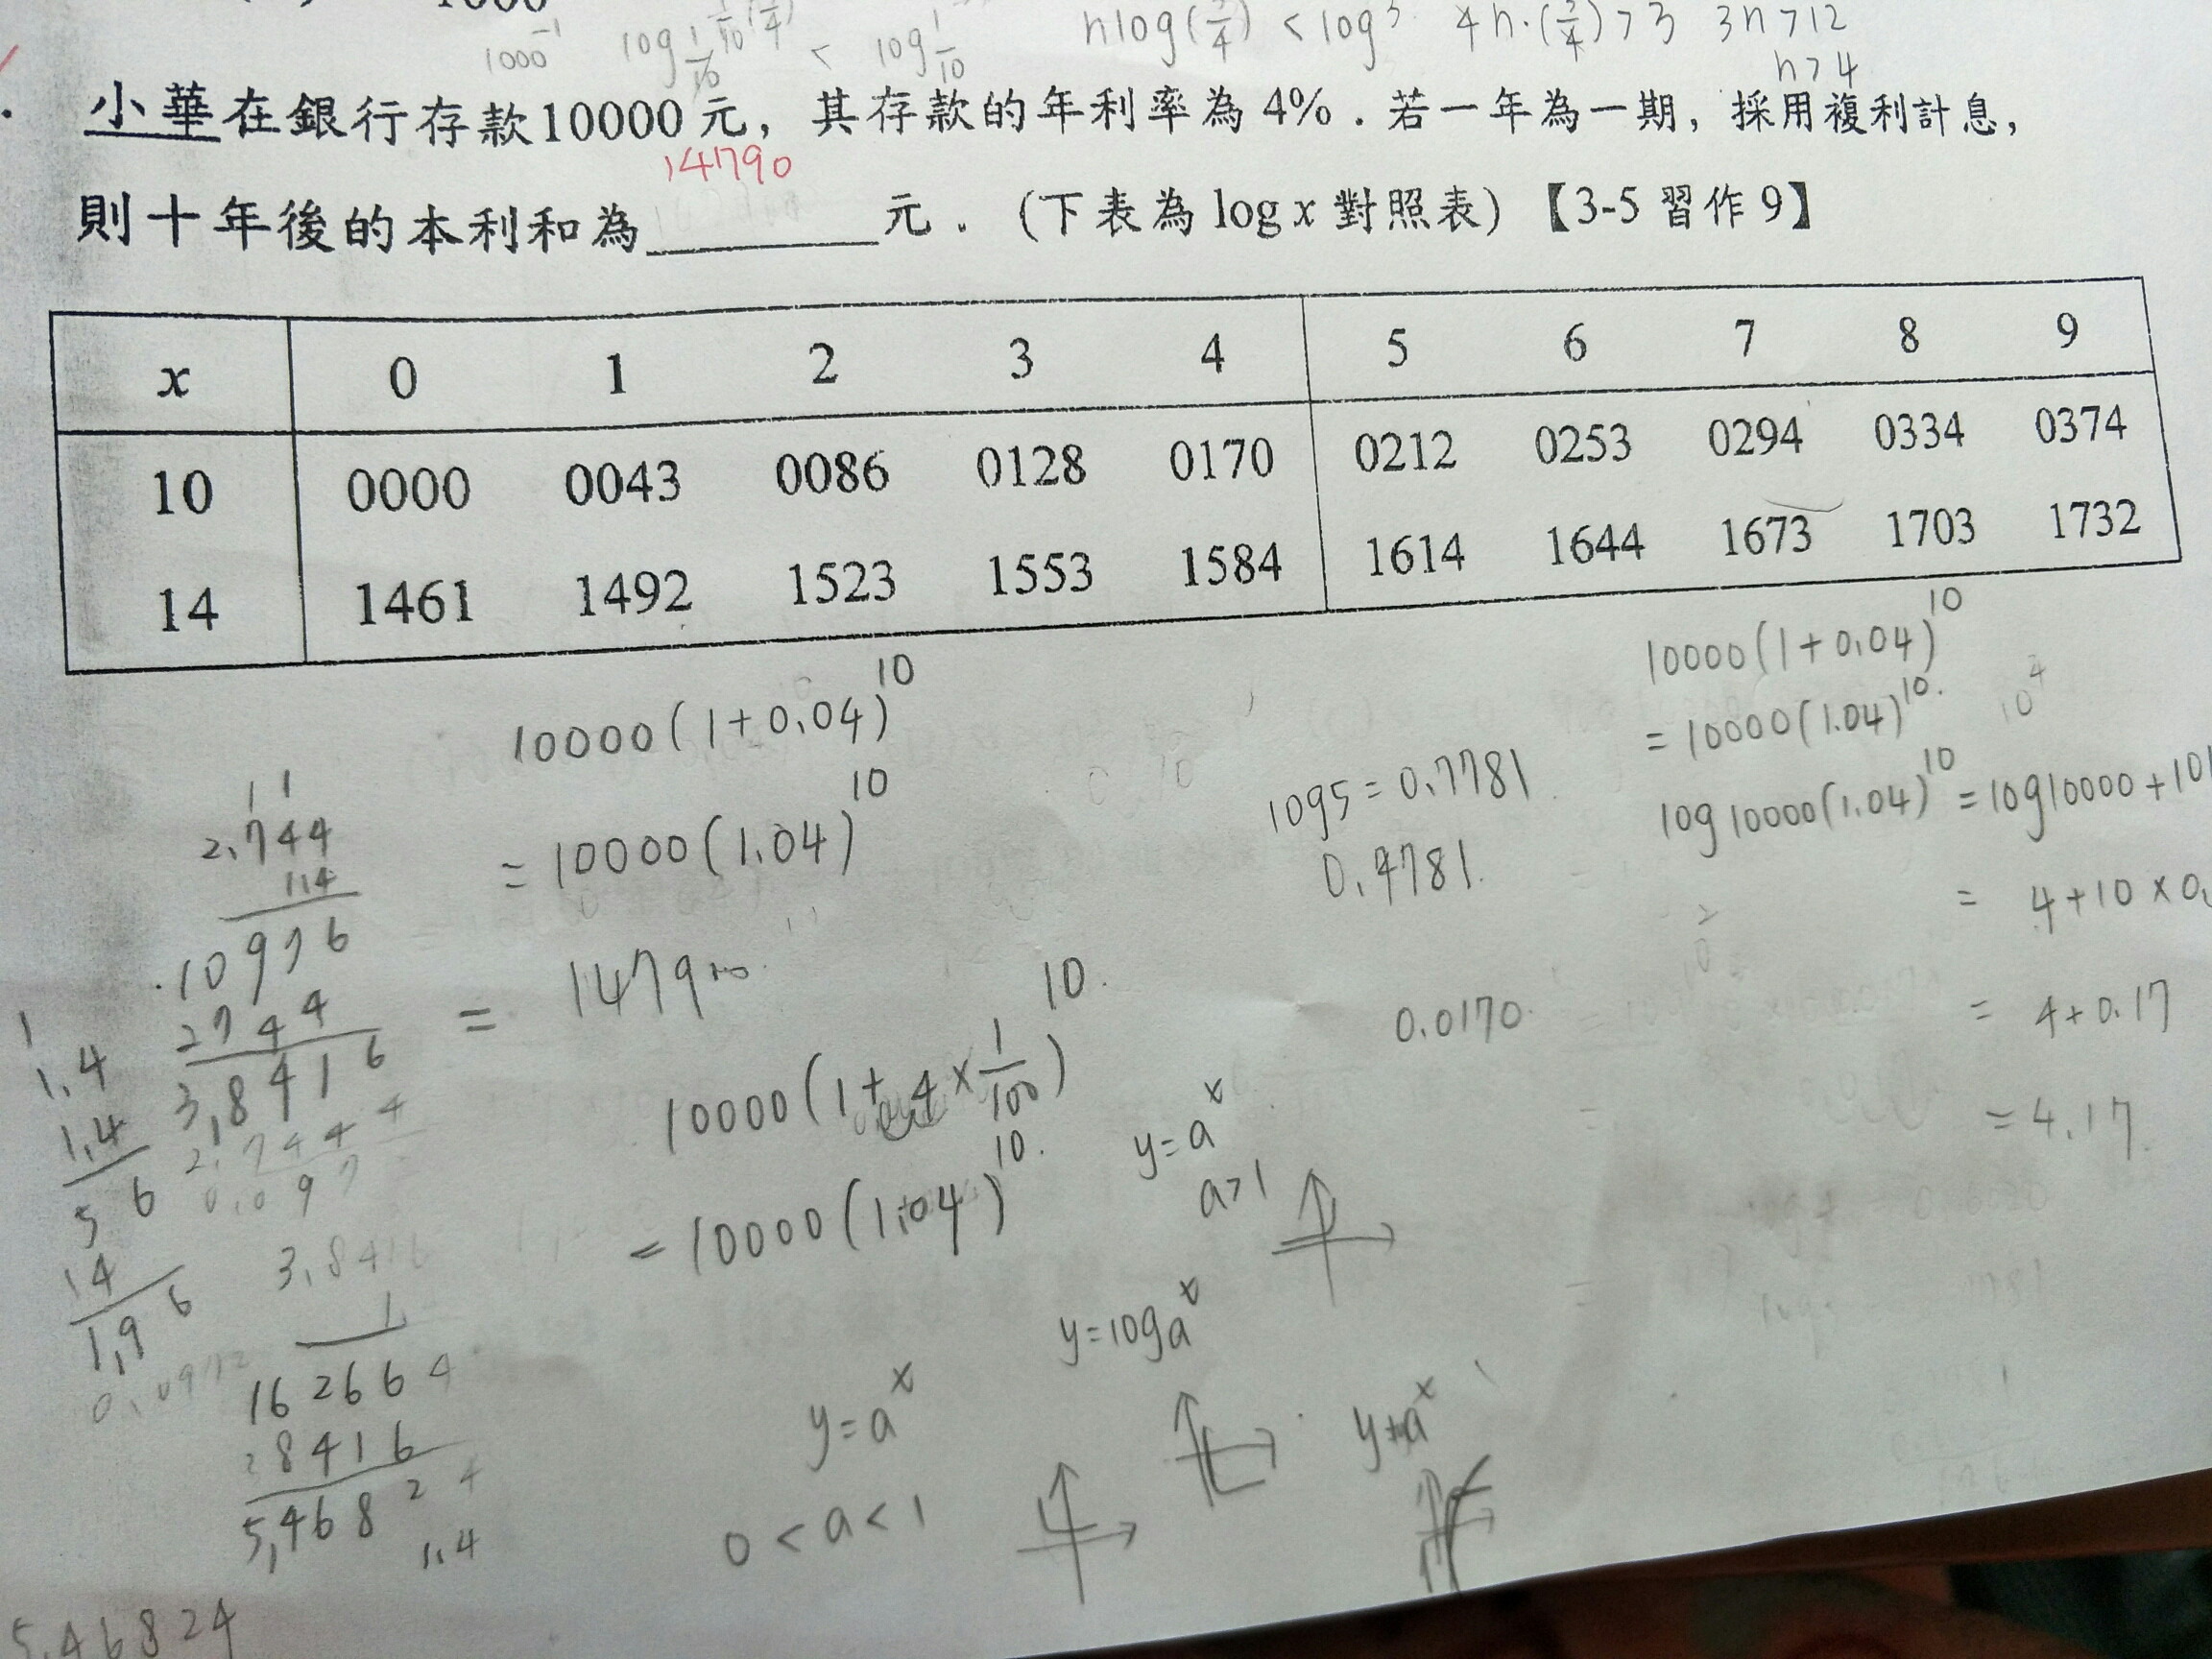 1000⁻¹
n log(3/4) < log 4n·(3/4)>3 3n>12
n>4
小華在銀行存款10000元，其存款的年利率為 4%．若一年為一期，採用複利計息，
14790
則十年後的本利和為________元．（下表為 log x 對照表）【3-5 習作 9】
x 0 1 2 3 4 5 6 7 8 9
10 0000 0043 0086 0128 0170 0212 0253 0294 0334 0374
14 1461 1492 1523 1553 1584 1614 1644 1673 1703 1732
10000(1+0.04)¹⁰
=10000(1.04)¹⁰
= 1479
10000(1+4×1/100)¹⁰
=10000(1.04)¹⁰
log5=0.7781
0.4781
0.0170
10000(1+0.04)¹⁰
=10000(1.04)¹⁰
10⁴
log10000(1.04)¹⁰=log10000+10l
= 4+10×0.
= 4+0.17
= 4.17
1 1
2.744
1.4
10976
2744
3.8416
2.744
0.097
3.8416
1.
162664
8416
5.46824
1.4
1
1.4
1.4
5 6
14
1.96
5.46824
y=aˣ
a>1
y=logaˣ
y=aˣ
0<a<1
y=aˣ